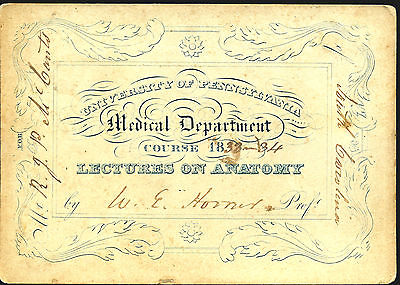 UNIVERSITY OF PENNSYLVANIA
Medical Department
COURSE 1833-34
LECTURES ON ANATOMY
by W. E. Horner Prof.r
FOR
Mr R. J. P. McCants
South Carolina